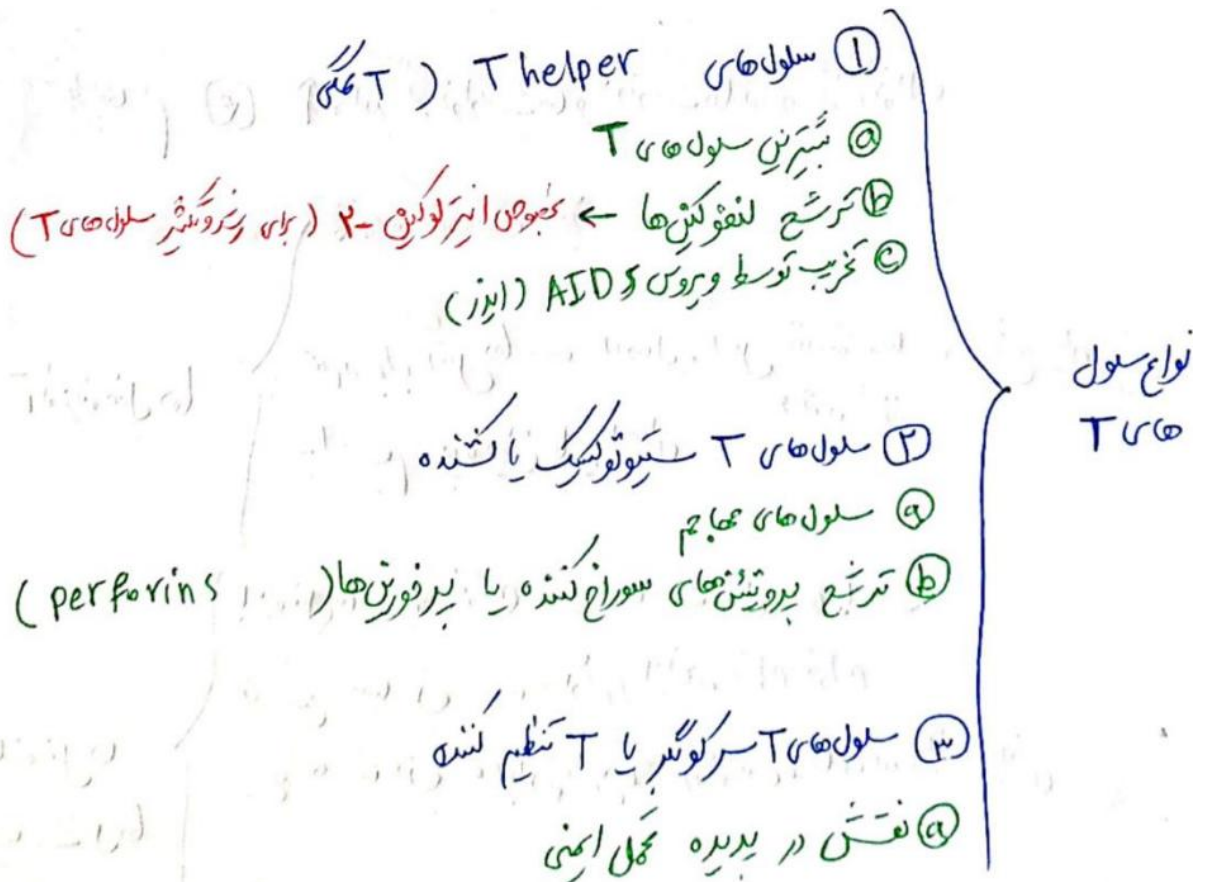 ① سلول‌های T helper ( T کمکی
ⓐ بیشترین سلول‌های T
ⓑ ترشح لنفوکین‌ها ← بخصوص انترلوکین -۲ ( برای رشد و تکثیر سلول‌های T)
ⓒ تخریب توسط ویروس AIDS (ایدز)
نواع سلول
های T
② سلول‌های T سیتوتوکسیک یا کشنده
ⓐ سلول‌های مهاجم
ⓑ ترشح پروتئین‌های سوراخ کننده یا پرفورین‌ها ( perforins )
③ سلول‌های T سرکوبگر یا T تنظیم کننده
ⓐ نقش در پدیده تحمل ایمنی